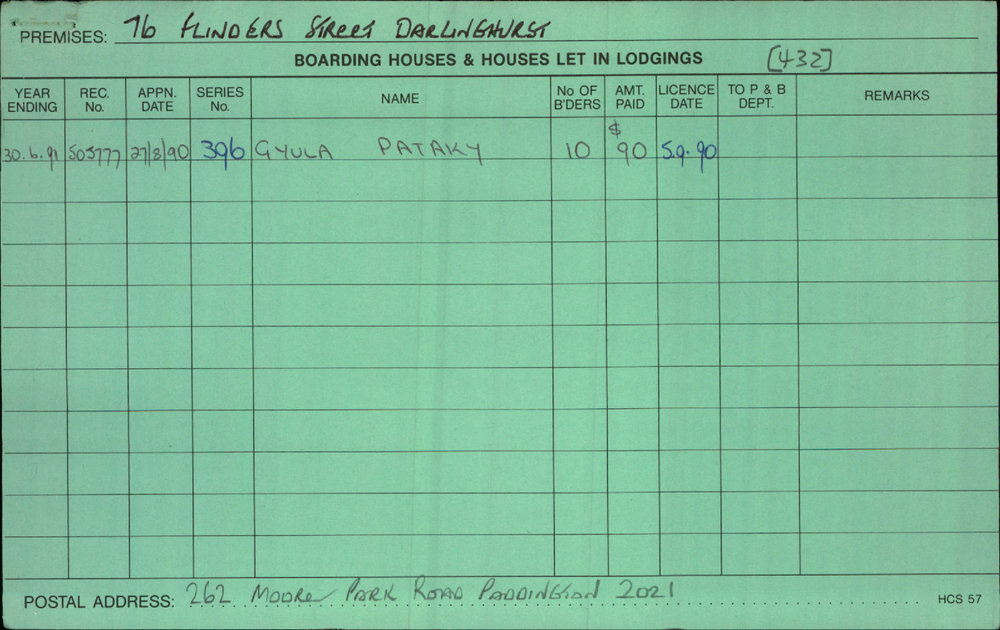 PREMISES: 76 FLINDERS STREET DARLINGHURST
BOARDING HOUSES & HOUSES LET IN LODGINGS [432]
YEAR ENDING REC. No. APPN. DATE SERIES No. NAME No OF B'DERS AMT. PAID LICENCE DATE TO P & B DEPT. REMARKS
30.6.91 505777 27/8/90 396 GYULA PATAKY 10 $90 5.9.90
POSTAL ADDRESS: 262 MOORE PARK ROAD PADDINGTON 2021 HCS 57